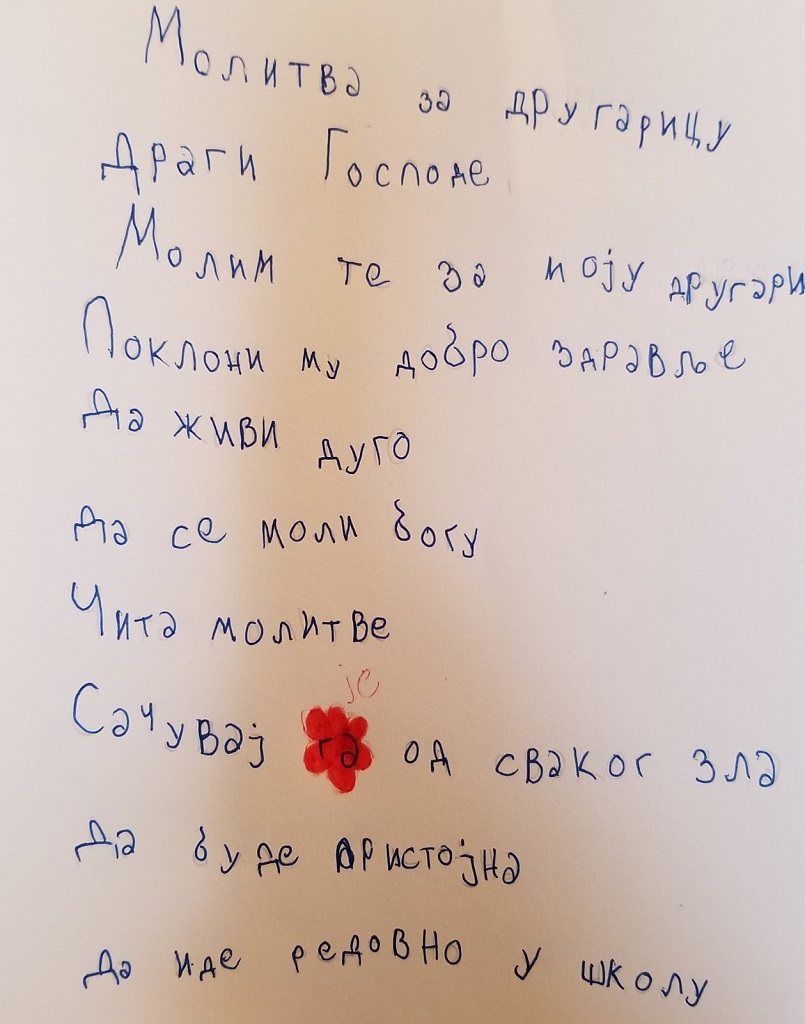 Молитва за другарицу
Драги Господе
Молим те за моју другари
Поклони му добро здравље
Да живи дуго
Да се моли богу
Чита молитве
је
Сачувај га од сваког зла
Да буде пристојна
Да иде редовно у школу